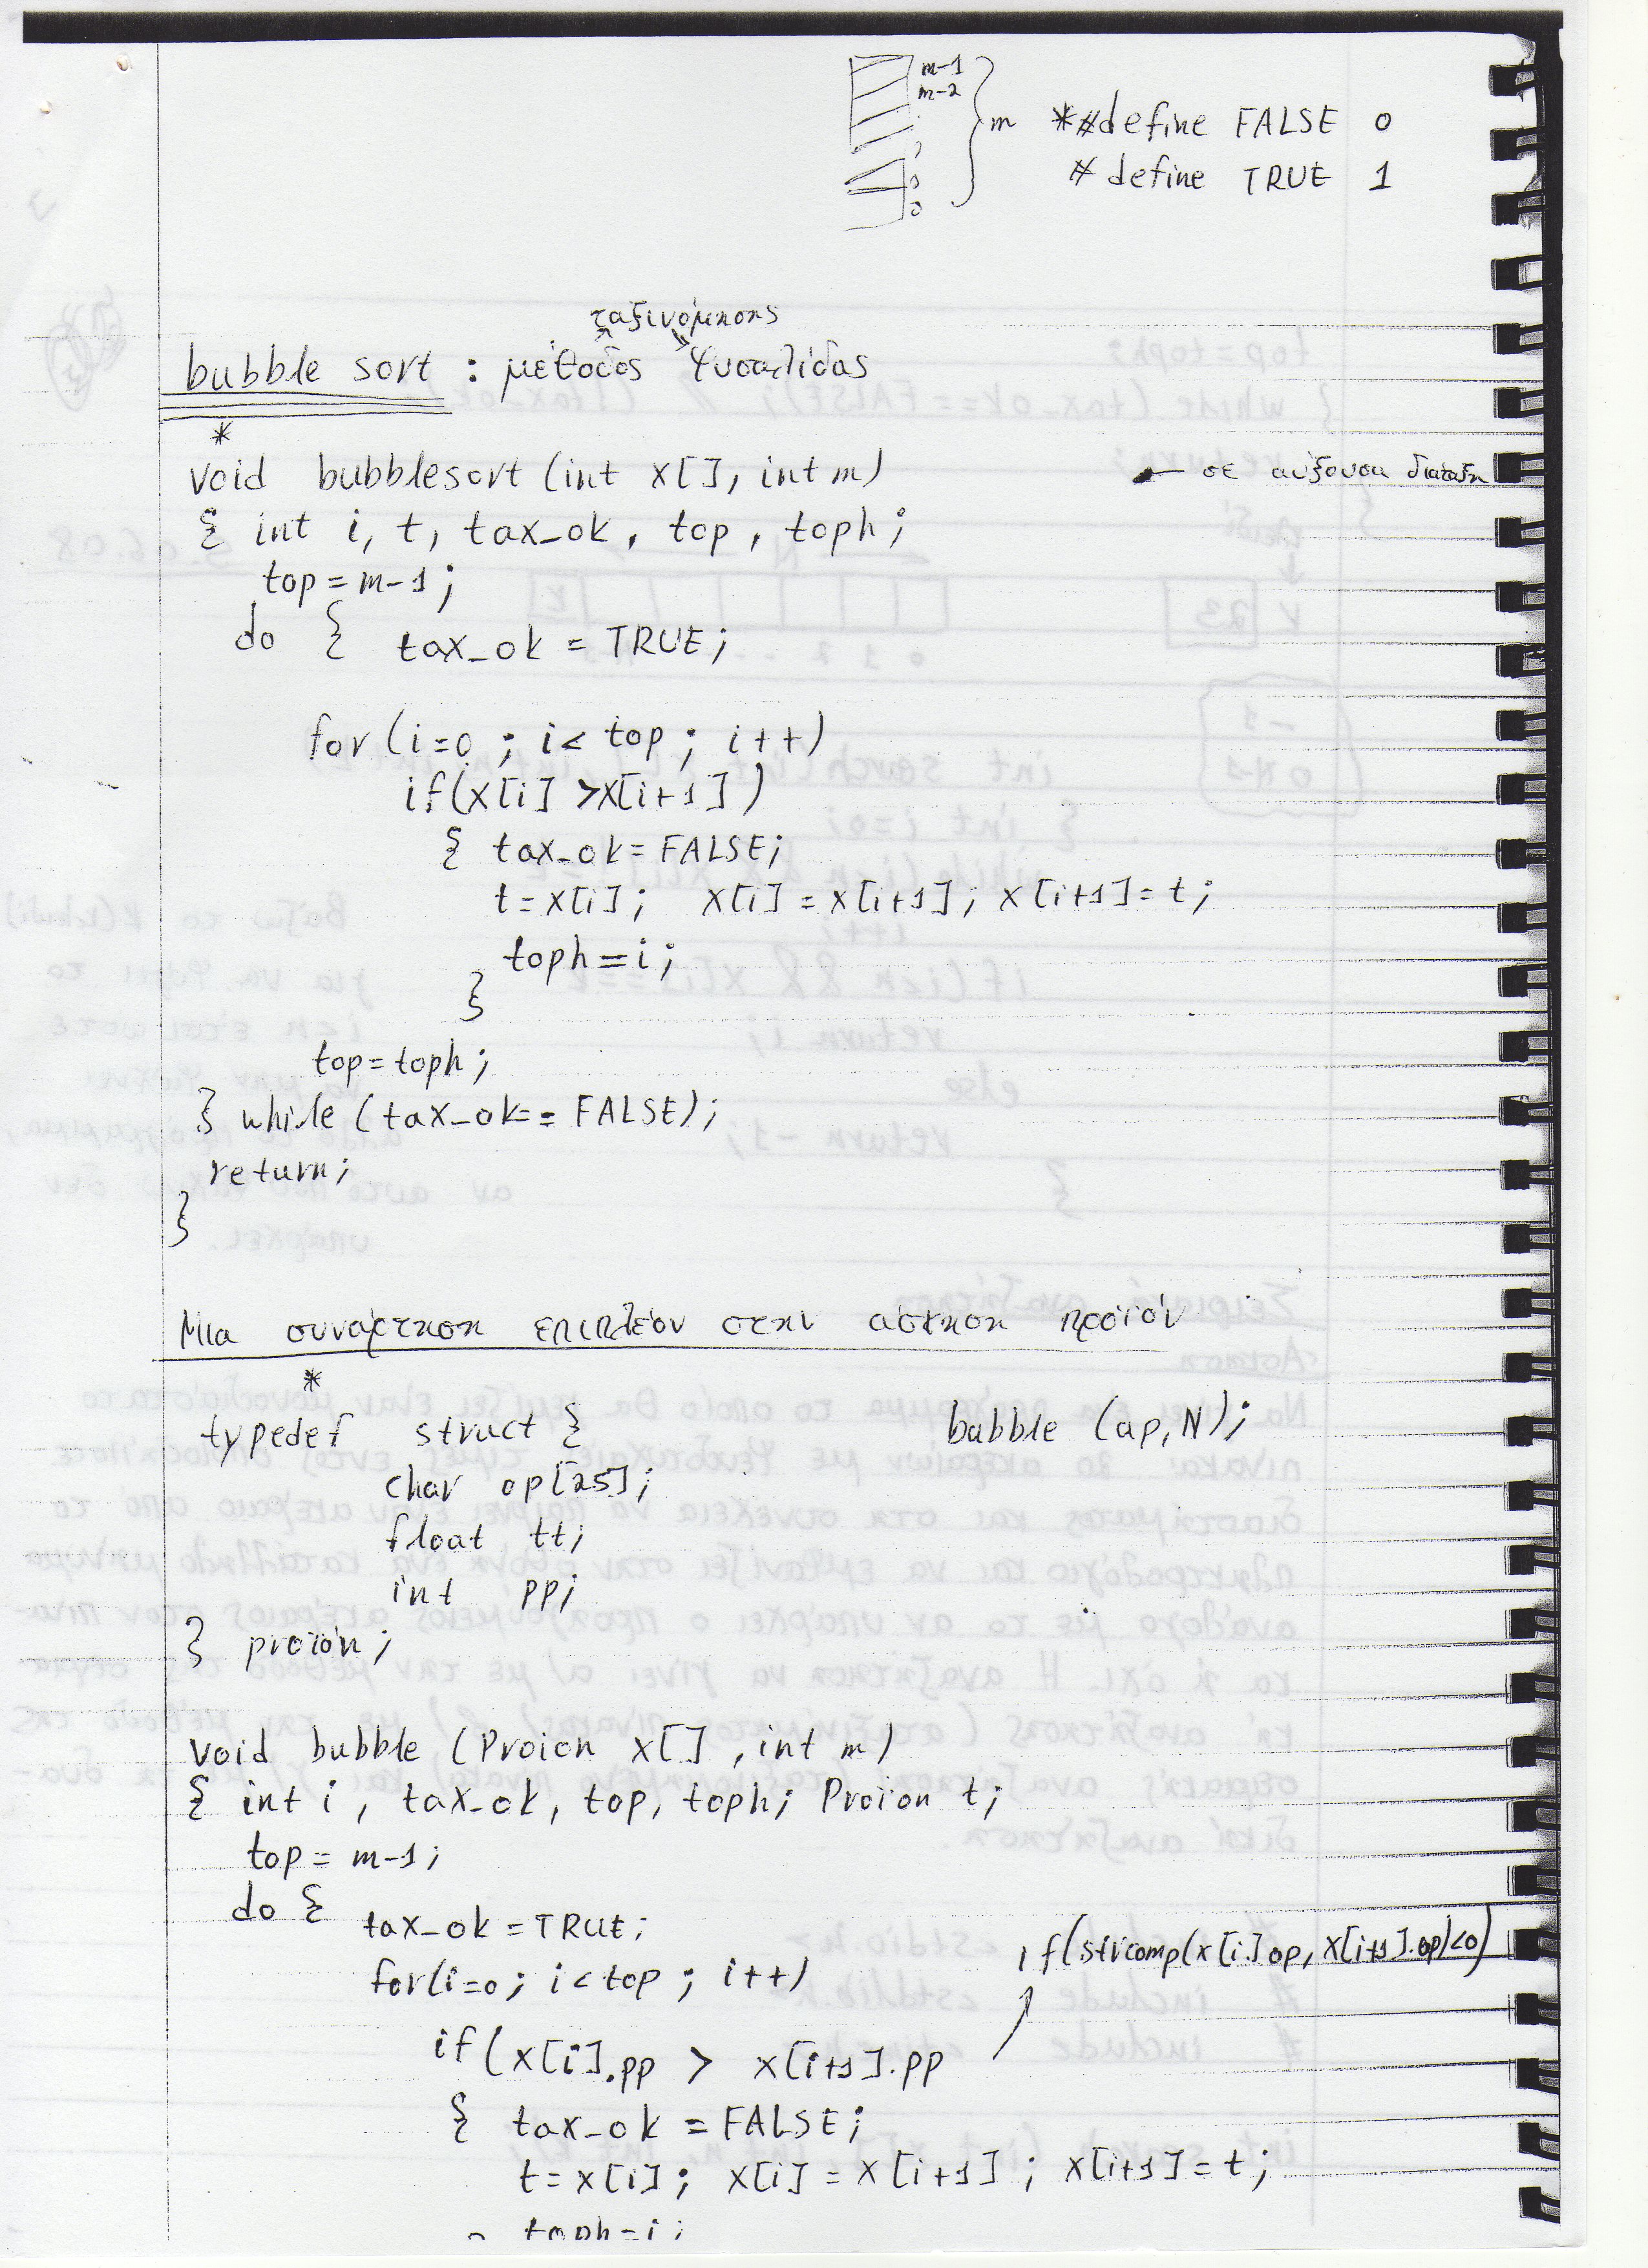 m-1
m-2
m
*#define FALSE 0
# define TRUE 1
0
ταξινόμησης
bubble sort : μέθοδος Φυσαλίδας
*
void bubblesort (int x[], int m)
← σε αύξουσα διάταξη
{ int i, t, tax_ok, top, toph;
top=m-1;
do { tax_ok = TRUE;
for (i=0 ; i< top ; i++)
if(x[i] >x[i+1])
{ tax_ok= FALSE;
t=x[i]; x[i] = x[i+1]; x[i+1]=t;
toph=i;
}
top=toph;
} while (tax_ok== FALSE);
return;
}
Μια συνάρτηση επιπλέον στην άσκηση προϊόν
*
typedef struct {
bubble (ap,N);
char op[25];
float tt;
int pp;
} proïón;
void bubble (Proion x[] , int m)
{ int i , tax_ok, top, toph; Proïon t;
top= m-1;
do {
tax_ok=TRUE;
if(strcomp(x[i.]op, x[i+1].op)<0)
for(i=0; i<top ; i++)
if (x[i].pp > x[i+1].pp
{ tax_ok = FALSE;
t=x[i]; x[i] = x[i+1]; x[i+1]=t;
toph=i;